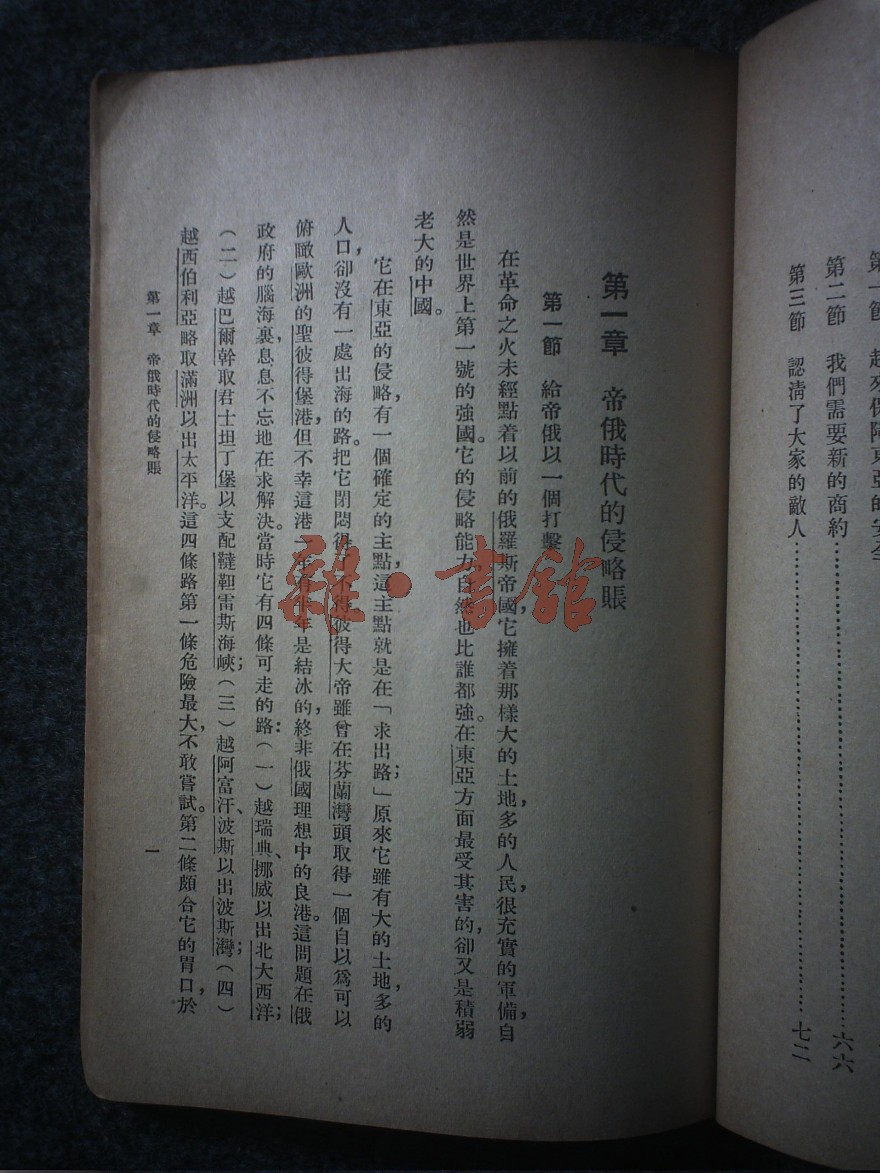 第一節　起來保障東亞的安全
第二節　我們需要新的商約……六六
第三節　認清了大家的敵人……七二
第一章　帝俄時代的侵略賬
第一節　給帝俄以一個打擊
在革命之火未經點着以前的俄羅斯帝國，它擁着那樣大的土地，多的人民，很充實的軍備，自
然是世界上第一號的強國。它的侵略能力自然也比誰都強。在東亞方面最受其害的，卻又是積弱
老大的中國。
它在東亞的侵略，有一個確定的主點，這主點就是在「求出路」；原來它雖有大的土地，多的
人口，卻沒有一處出海的路。把它閉悶得了不得。彼得大帝雖曾在芬蘭灣頭取得一個自以爲可以
俯瞰歐洲的聖彼得堡港，但不幸這港一年有半年是結冰的，終非俄國理想中的良港。這問題在俄
政府的腦海裏，息息不忘地在求解決。當時它有四條可走的路：（一）越瑞典、挪威以出北大西洋；
（二）越巴爾幹取君士坦丁堡以支配韃靼雷斯海峽；（三）越阿富汗、波斯以出波斯灣；（四）
越西伯利亞略取滿洲以出太平洋。這四條路第一條危險最大，不敢嘗試。第二條頗合它的胃口，於
第一章　帝俄時代的侵略賬
一
雜·書館